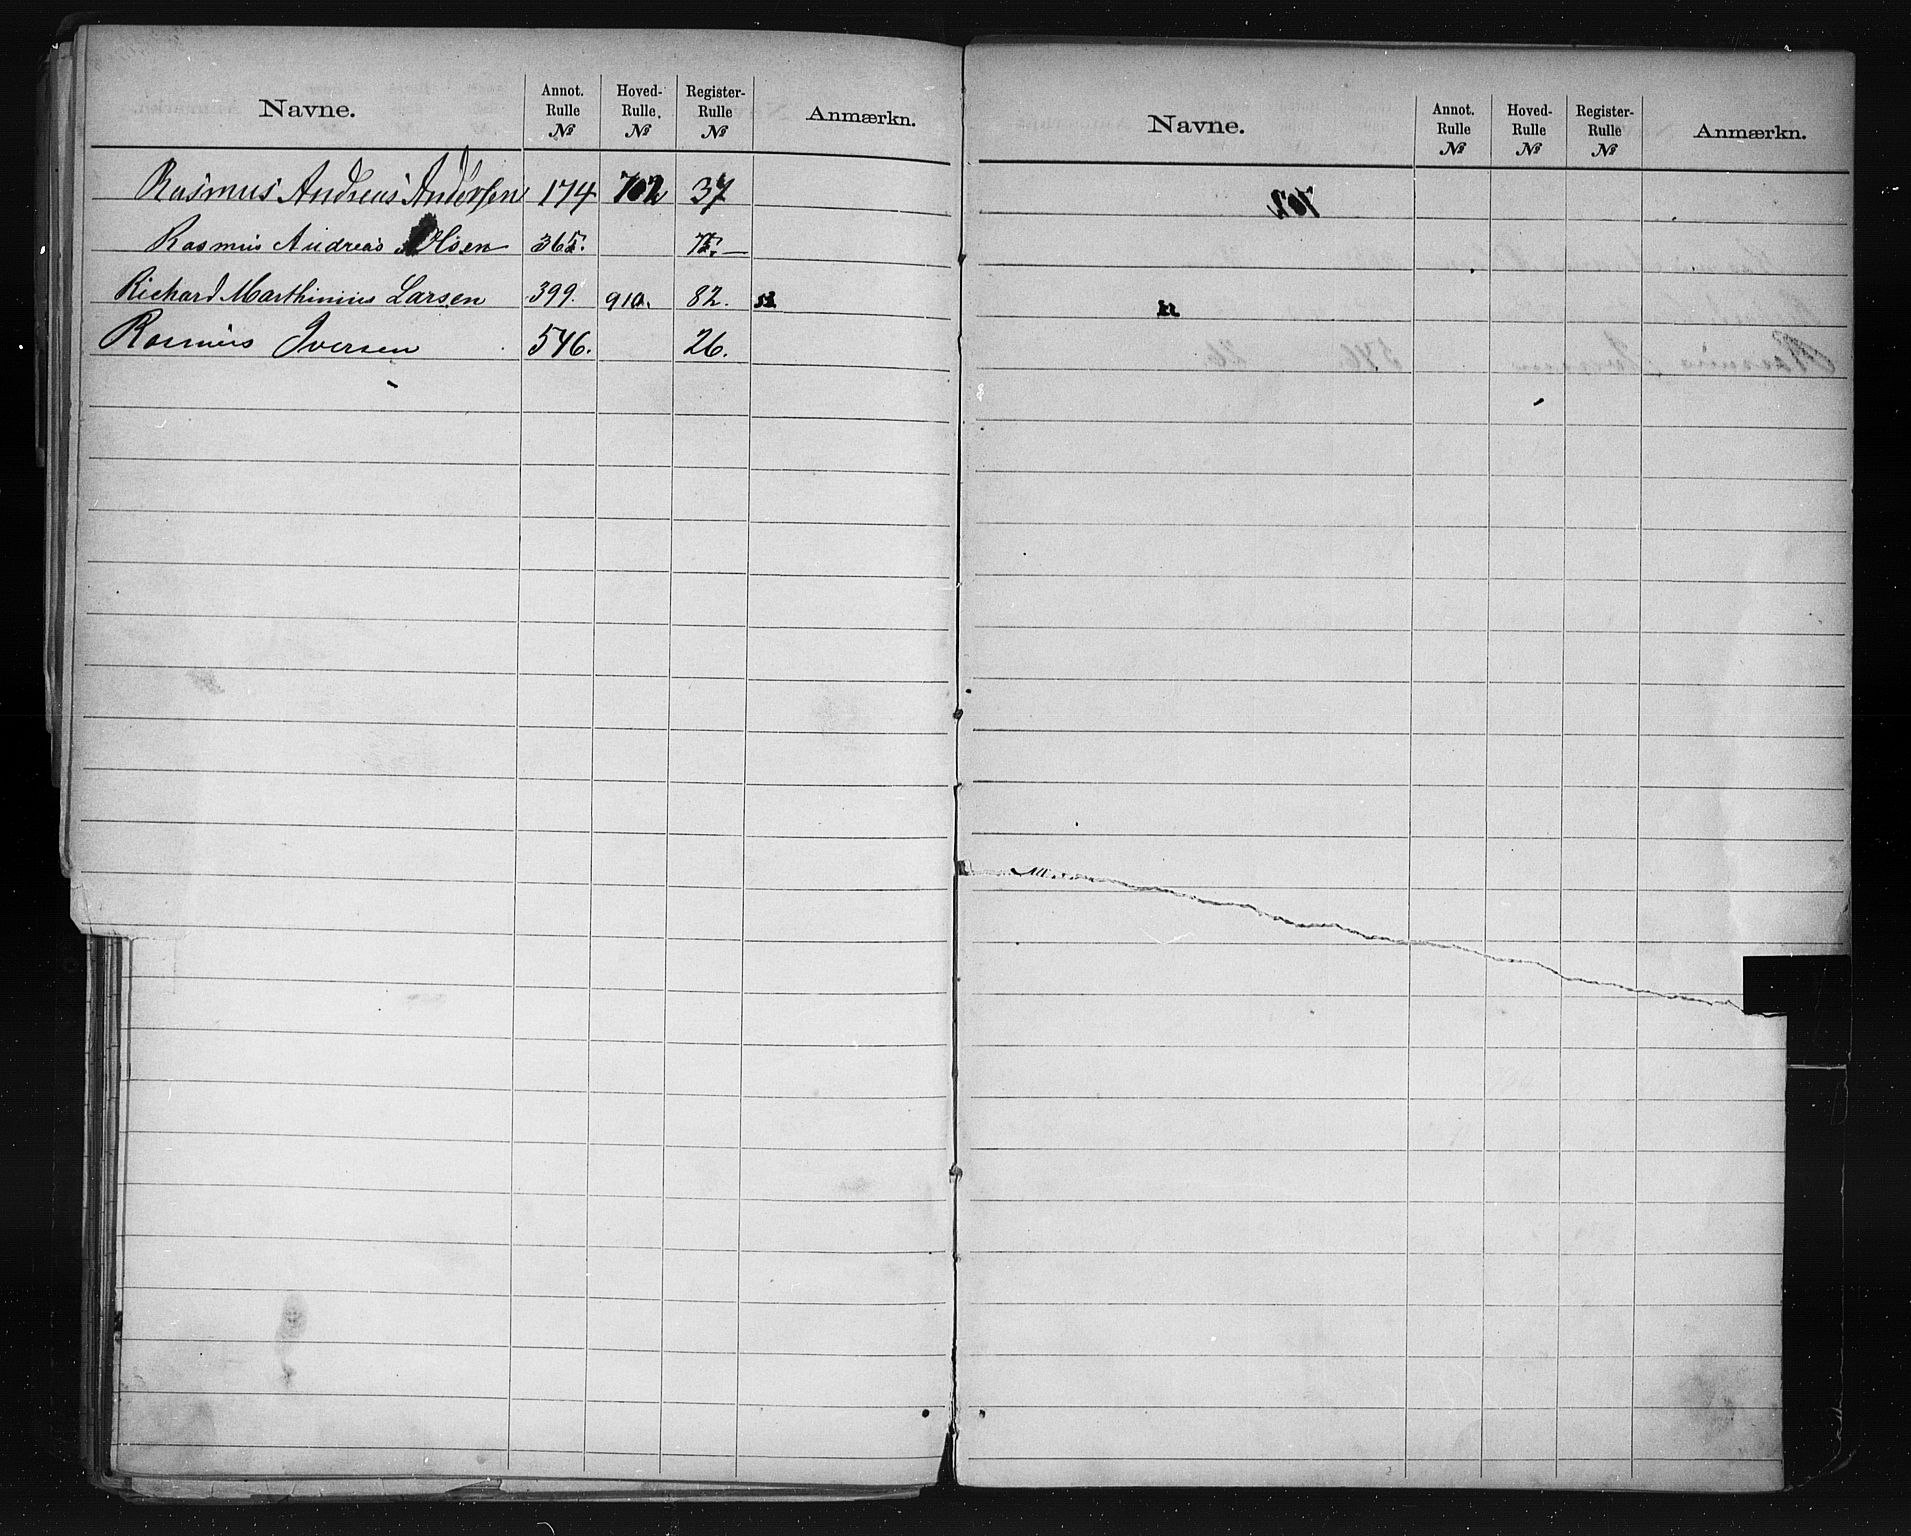 Navne. Annot. Rulle № Hoved-Rulle. № Register-Rulle № Anmærkn.
Rasmus Andreas Andersen 174 702 37
Rasmus Andreas Olsen 365. 75.
Richard Marthinius Larsen 399. 910. 82.
Rasmus Iversen 546. 26.
Navne. Annot. Rulle № Hoved-Rulle № Register-Rulle № Anmærkn.